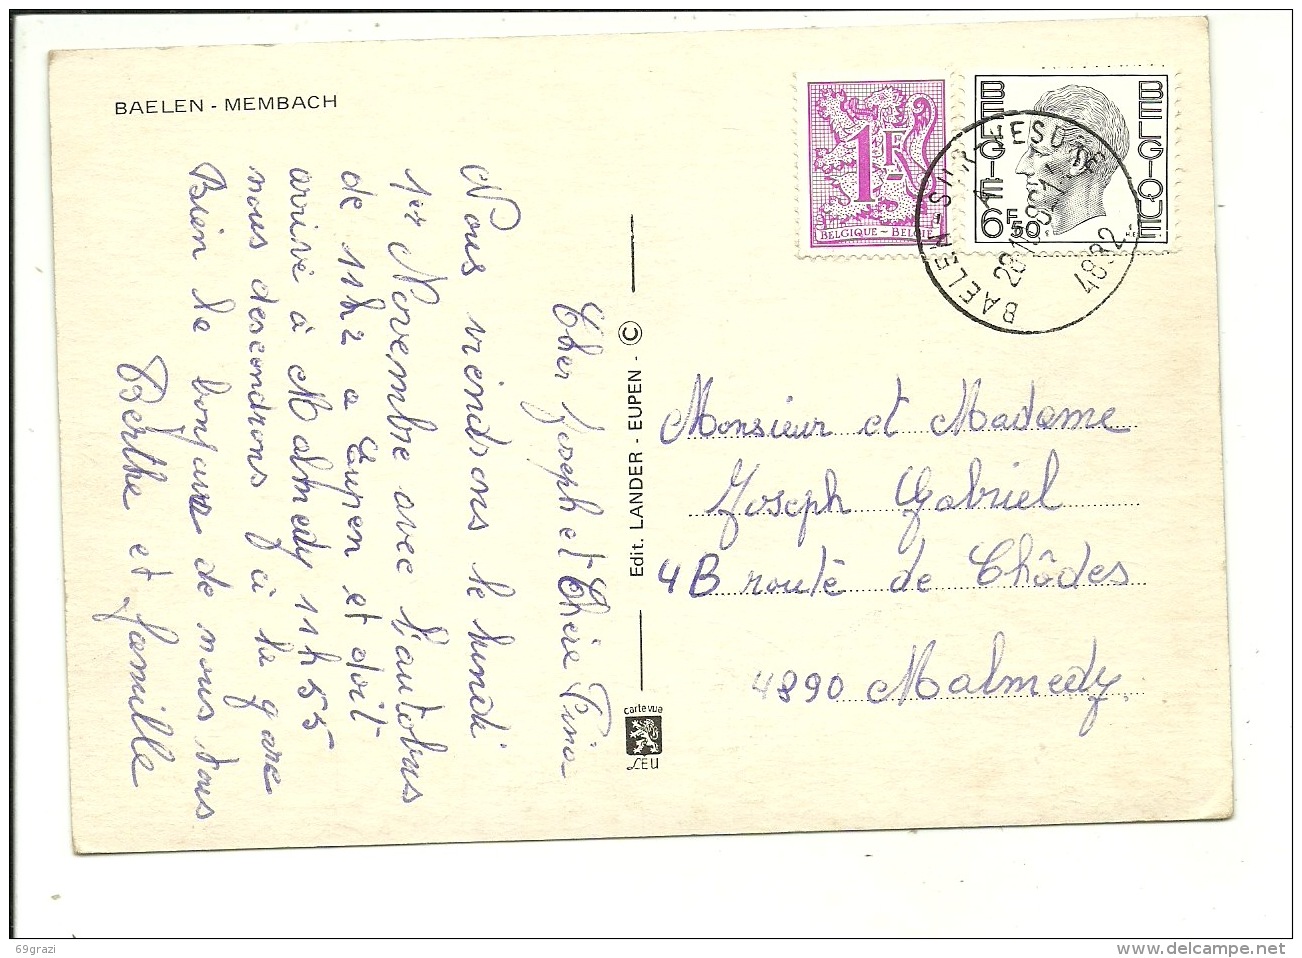 BAELEN - MEMBACH
Cher Joseph et Chère Tina
Nous viendrons le lundi
1er Novembre avec l'autobus
de 11h2 a Eupen et doit
arrivé à Malmedy 11h55
nous descendrons jà la gare
Bien le bonjour de nous tous
Berthe et famille
Edit. LANDER - EUPEN - ©
carte vue
LEU
1F
BELGIQUE - BELGIË
BELGIE
BELGIQUE
6F50
BAELEN-SUR-VESDRE
A
4832
Monsieur et Madame
Joseph Gabriel
4B route de Chôdes
4890 Malmedy.
69grazi
www.delcampe.net